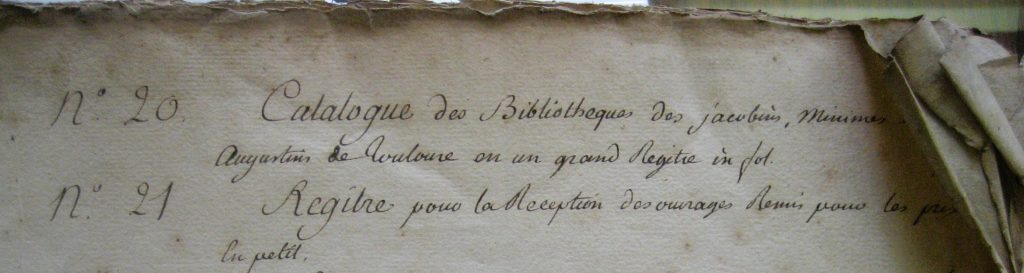 N.° 20. Catalogue des Bibliotheques des jacobins, Minimes
Augustins de Toulouse en un grand Regitre in fol.
N.° 21 Regitre pour la Reception des ouvrages Remis pour les prix
En petit.